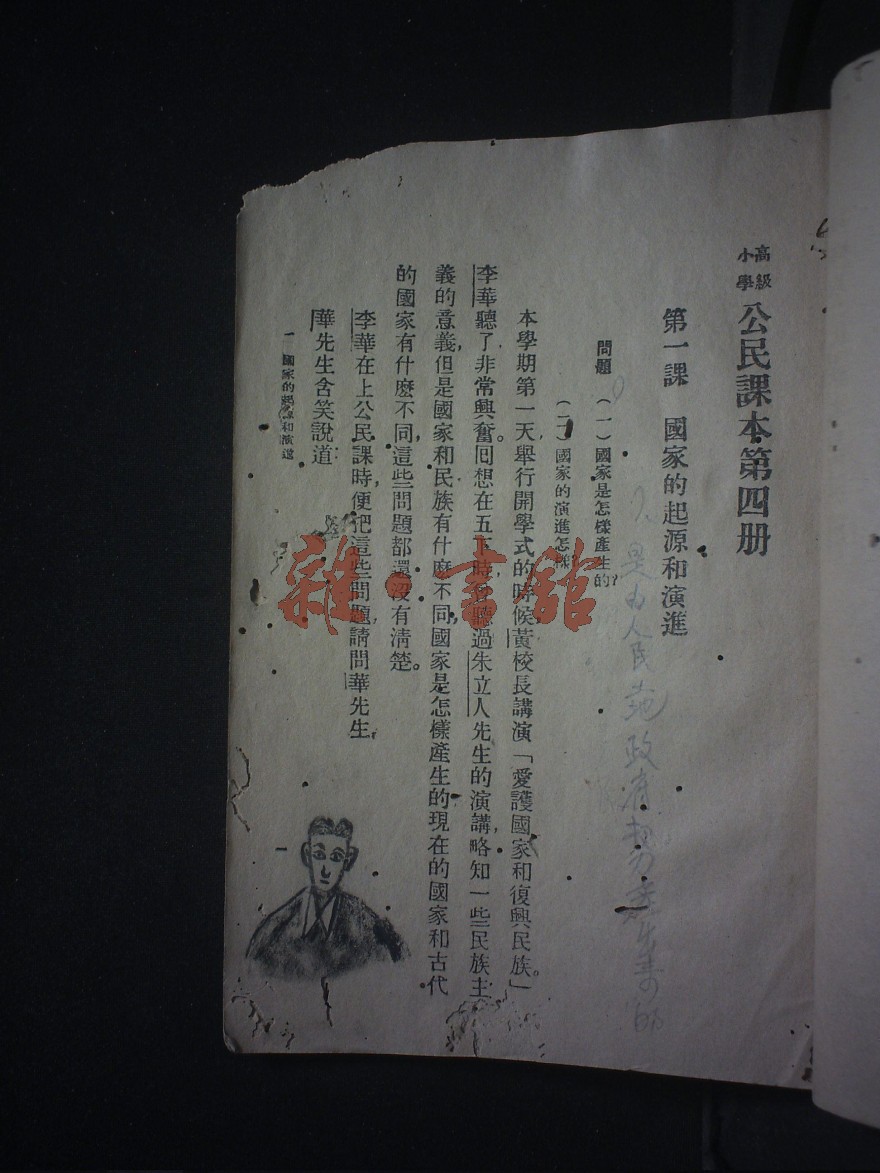 高級
小學
公民課本第四册
第一課　國家的起源和演進
問題　(一)國家是怎樣產生的?
(二)國家的演進怎樣?
本學期第一天,舉行開學式的時候,黃校長講演「愛護國家和復興民族。」
李華聽了非常興奮。回想在五下時,曾聽過朱立人先生的演講,略知一些民族主
義的意義,但是國家和民族有什麽不同,國家是怎樣產生的,現在的國家和古代
的國家有什麽不同,這些問題都還沒有清楚。
李華在上公民課時,便把這些問題,請問華先生,
華先生含笑說道:
一　國家的起源和演進
一
雜·書館
是由人民
政府